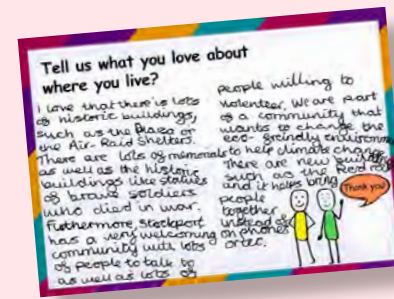 Tell us what you love about
where you live?
I love that there is lots
of historic buildings,
such as the Plaza or
the Air-Raid Shelters.
There are lots of memorials
as well as the historic
buildings like statues
of brave soldiers
who died in war.
Futhermore, Stockport
has a very welcoming
community with lots
of people to talk to
as well as lots of
people willing to
volenteer, We are part
of a community that
wants to change the
eco-friendly
to help climate change
There are new
such as the Red
and it helps bring
people
together
instead of
on phones
or tec.
Thank you!